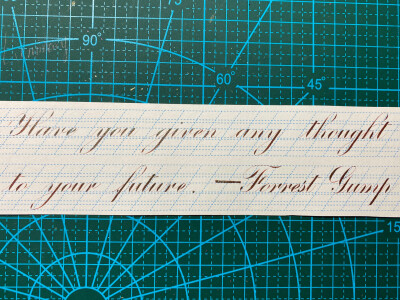 90°
75
60°
45°
Have you given any thought
to your future. —Forrest Gump
15